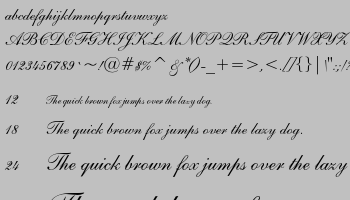 abcdefghijklmnopqrstuvwxyz
ABCDEFGHIJKLMNOPQRSTUVWXYZ
0123456789`~!@#$%^&*()-_+=>,<.[]{}|\":;/?
12 The quick brown fox jumps over the lazy dog.
18 The quick brown fox jumps over the lazy dog.
24 The quick brown fox jumps over the lazy